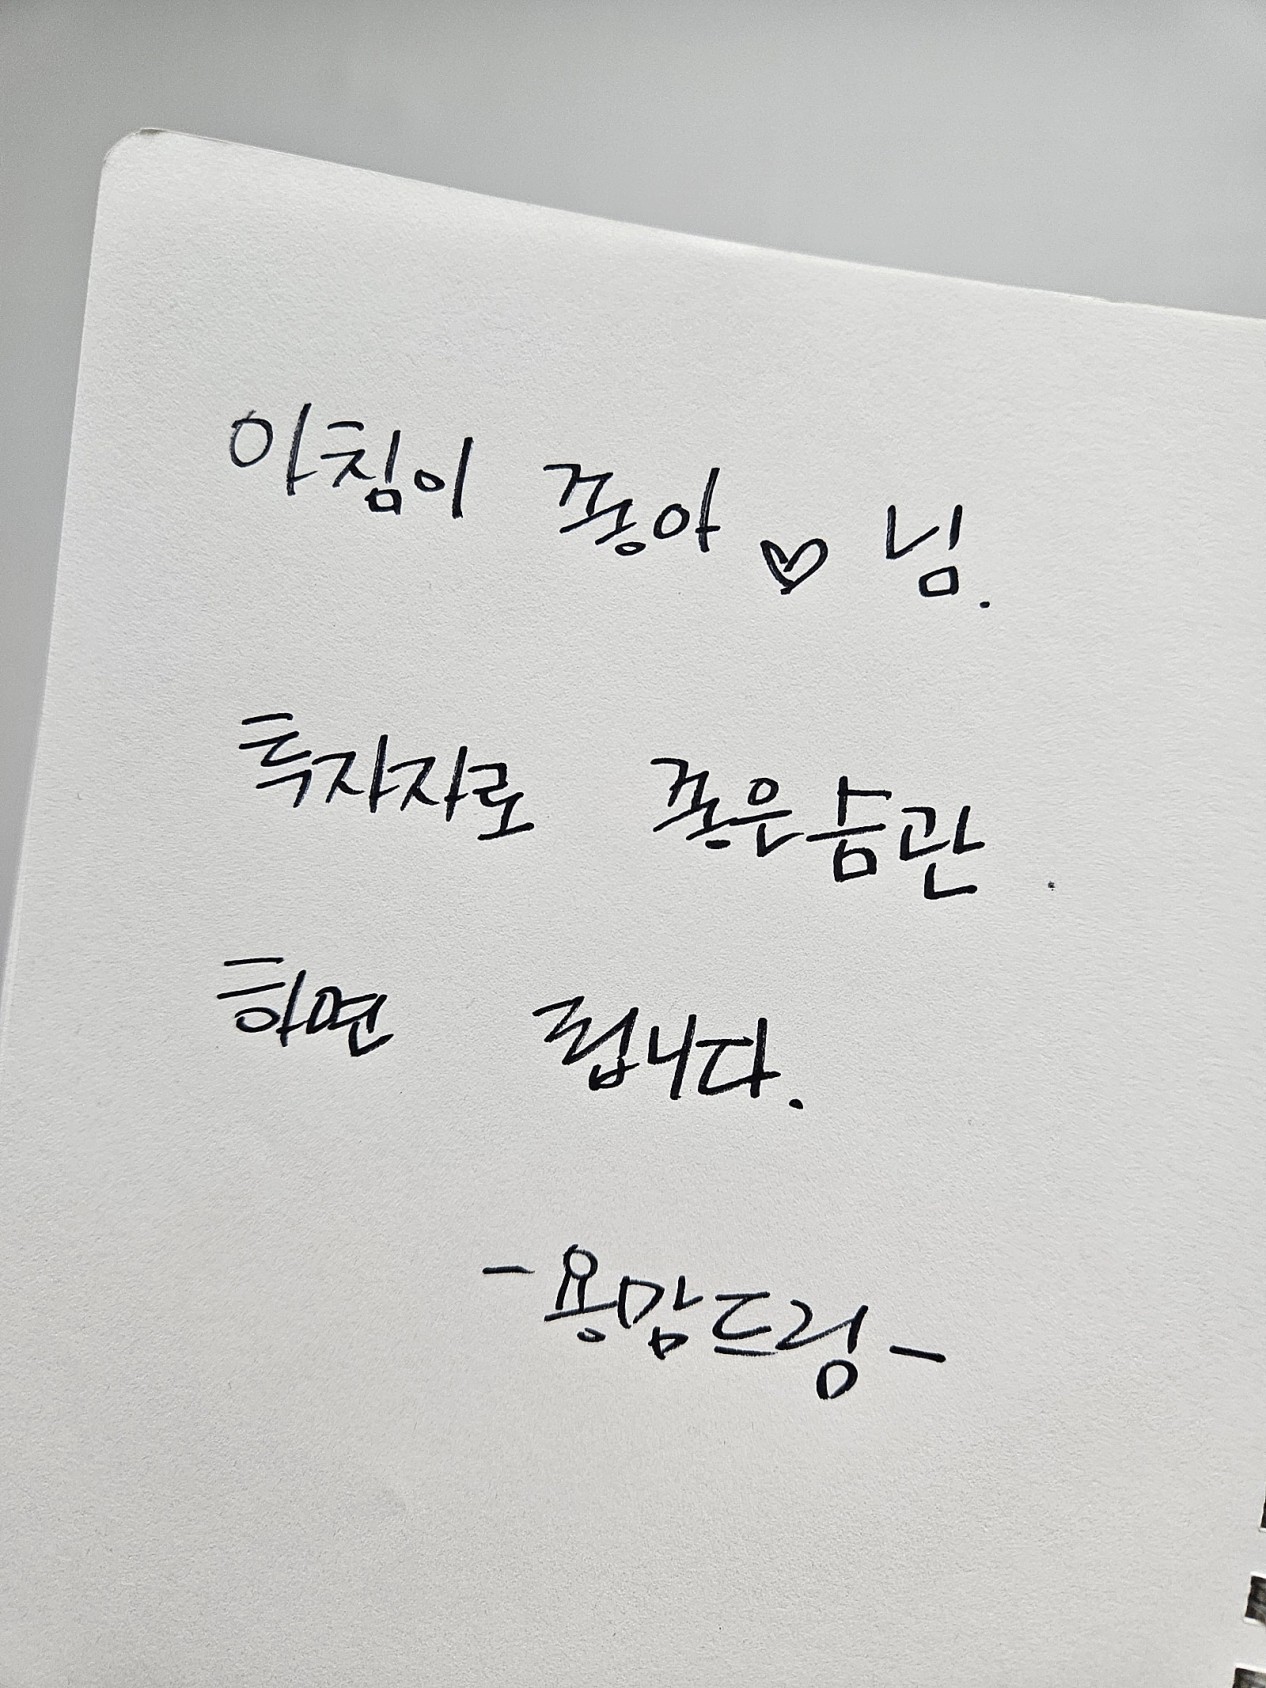 아침이 좋아 ♡ 님.
투자자로 좋은습관
하면 됩니다.
-용맘드림-